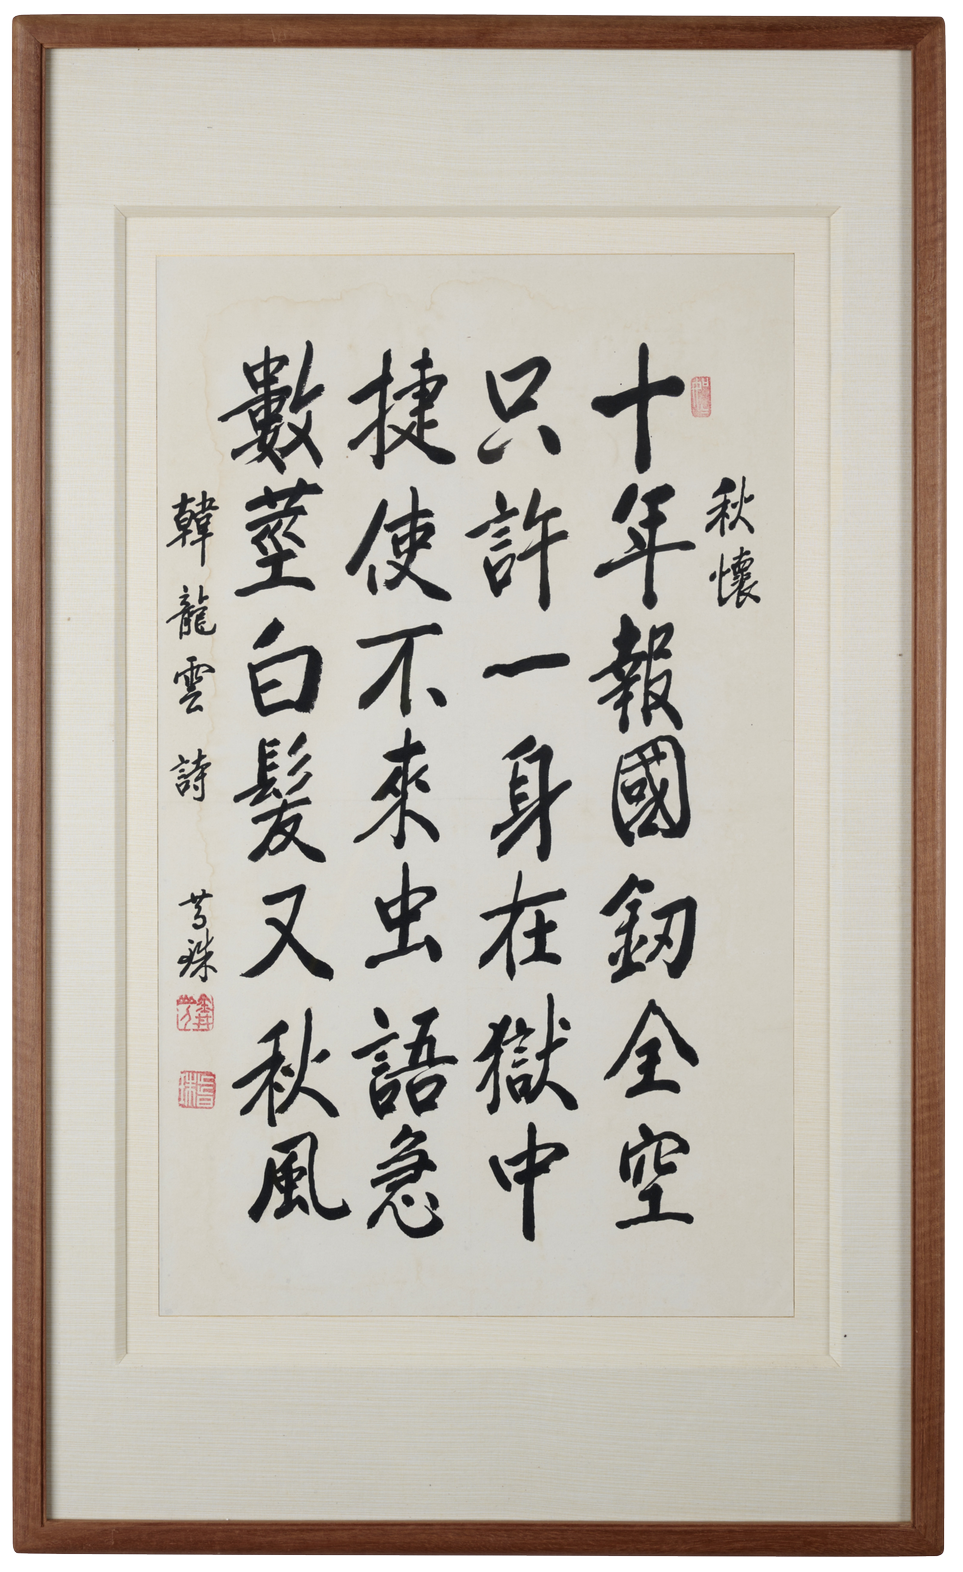 秋懷
十年報國釰全空
只許一身在獄中
捷使不來虫語急
數莖白髮又秋風
韓龍雲 詩